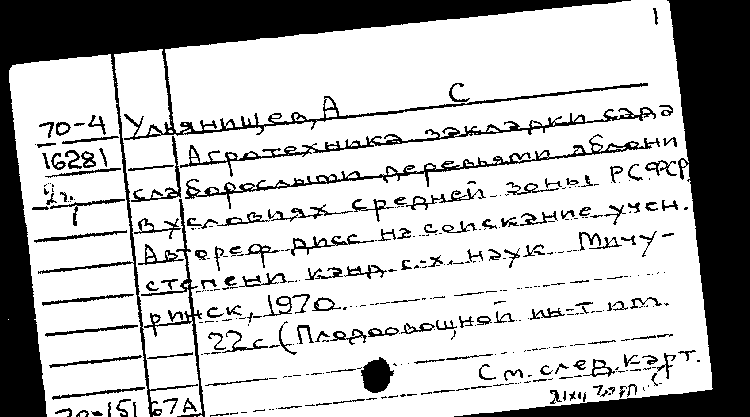 1
70-4 Ульянищев, А С
16281 Агротехника закладки сада
2 г. слаборослыми деревьями яблони
1 в условиях средней зоны РСФСР
Автореф дисс на соискание учен.
степени канд. с.-х. наук Мичу-
ринск, 1970.
22с (Плодоовощной ин-т им.
См. след. карт.
70-151 67А